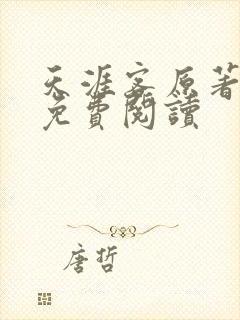 天涯客原著
免費閱讀
唐哲